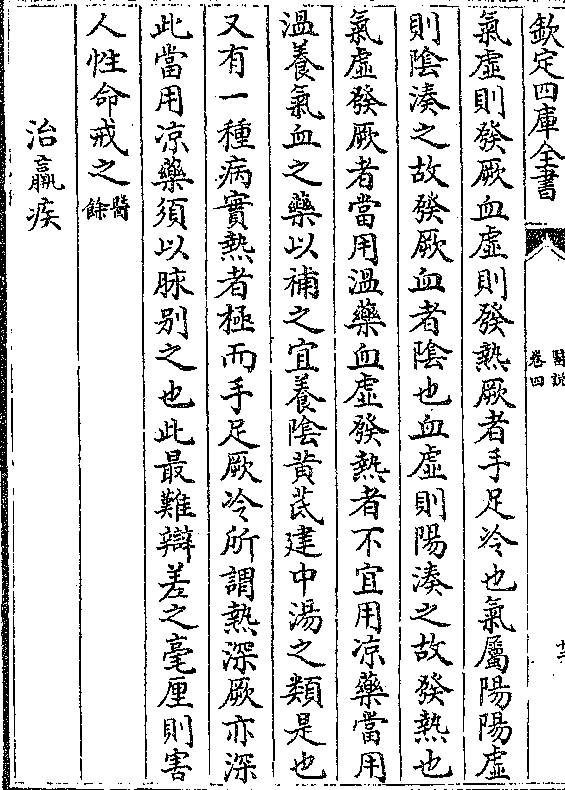 欽定四庫全書
醫說
卷四
氣虛則發厥血虛則發熱厥者手足冷也氣屬陽陽虛
則陰湊之故發厥血者陰也血虛則陽湊之故發熱也
氣虛發厥者當用溫藥血虛發熱者不宜用凉藥當用
溫養氣血之藥以補之宜養陰黄芪建中湯之類是也
又有一種病實熱者極而手足厥冷所謂熱深厥亦深
此當用凉藥須以脉别之也此最難辯差之毫厘則害
人性命戒之醫餘
治羸疾